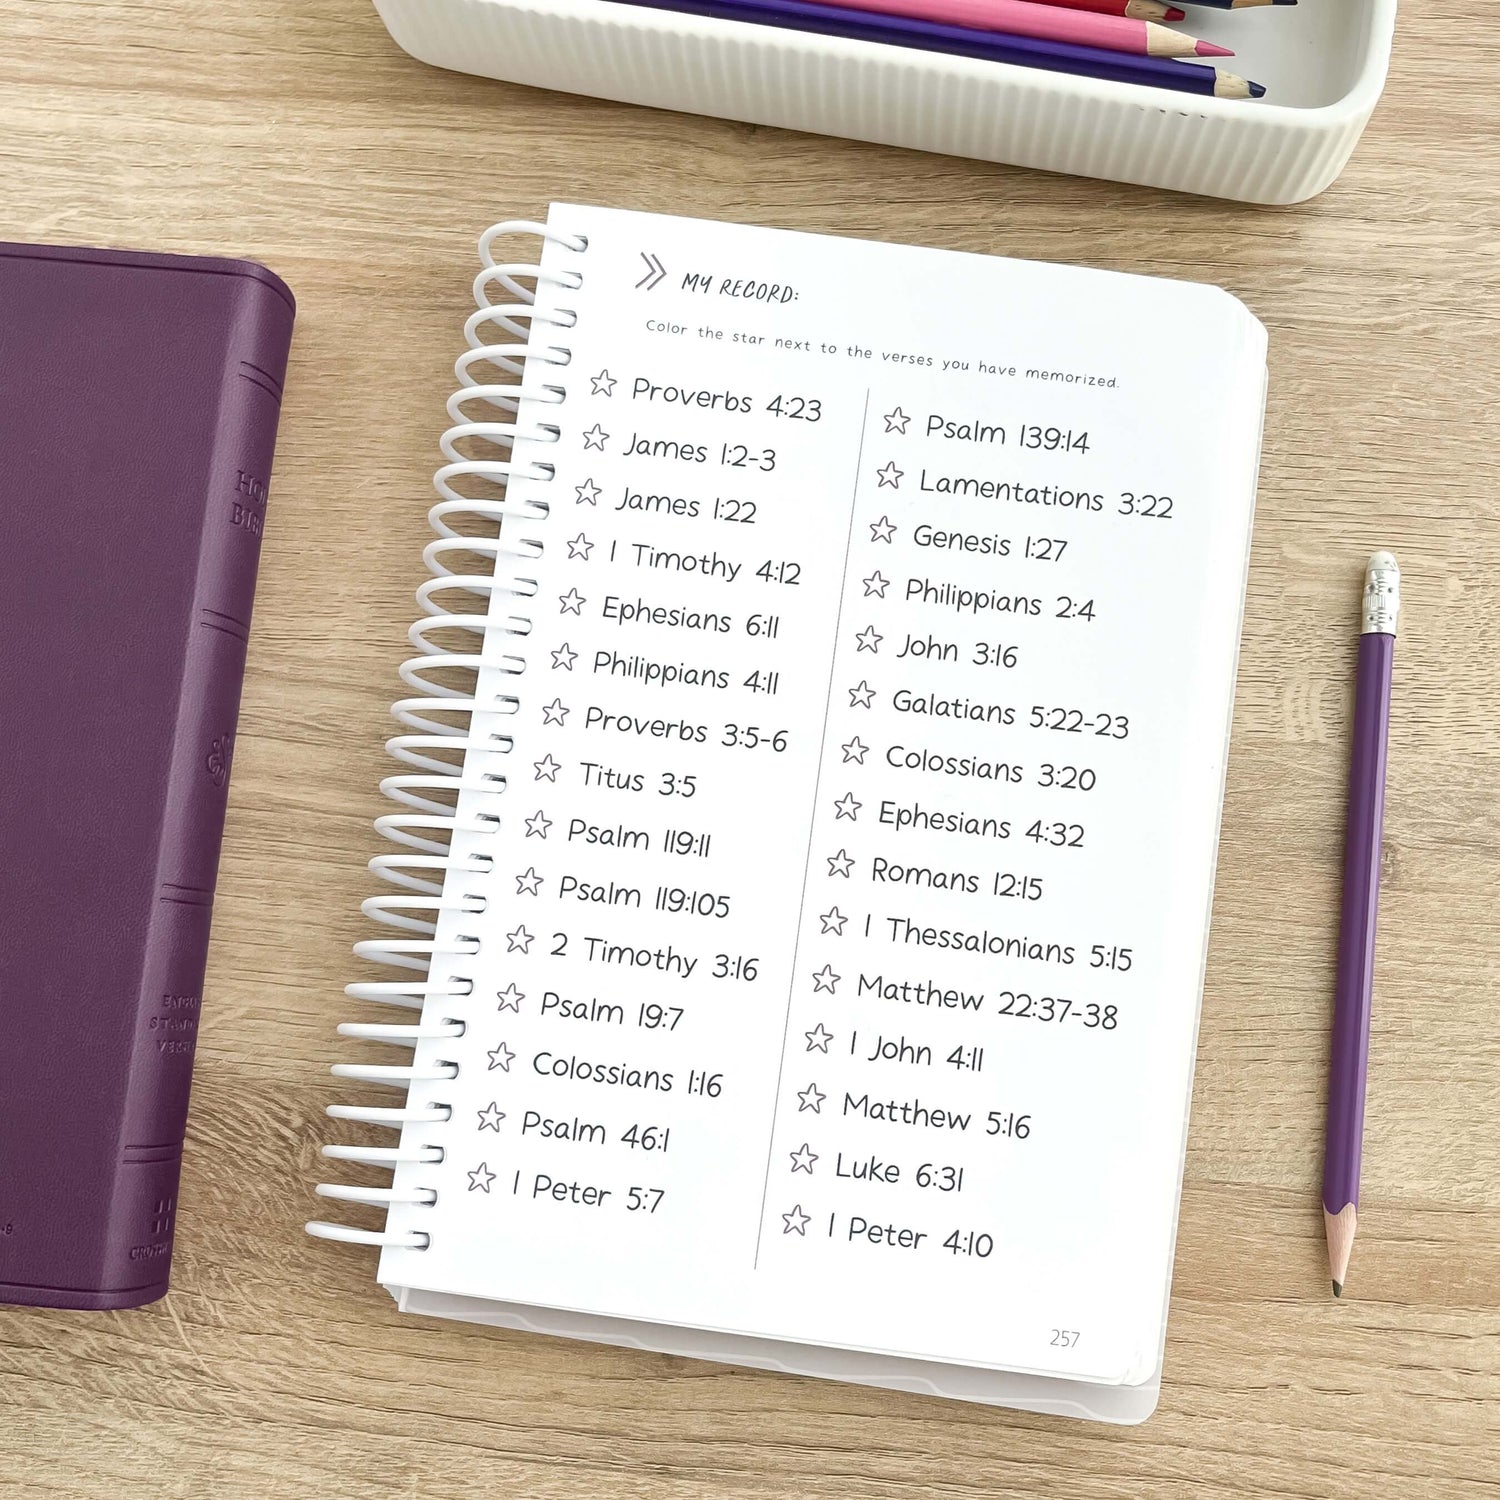 MY RECORD:
Color the star next to the verses you have memorized.
Proverbs 4:23
James 1:2-3
James 1:22
1 Timothy 4:12
Ephesians 6:11
Philippians 4:11
Proverbs 3:5-6
Titus 3:5
Psalm 119:11
Psalm 119:105
2 Timothy 3:16
Psalm 19:7
Colossians 1:16
Psalm 46:1
1 Peter 5:7
Psalm 139:14
Lamentations 3:22
Genesis 1:27
Philippians 2:4
John 3:16
Galatians 5:22-23
Colossians 3:20
Ephesians 4:32
Romans 12:15
1 Thessalonians 5:15
Matthew 22:37-38
1 John 4:11
Matthew 5:16
Luke 6:31
1 Peter 4:10
257